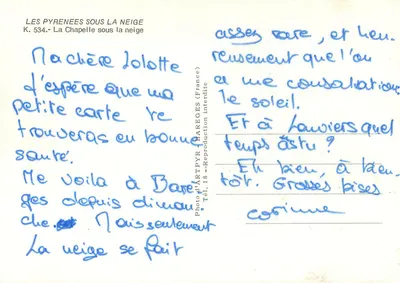 LES PYRENEES SOUS LA NEIGE
K. 534.- La Chapelle sous la neige
Ma chère Lolotte
J'espère que ma
petite carte te
trouveras en bonne
santé.
Me voila à Barè
ges depuis diman
che. Mais seulement
La neige se fait
Photo l'ARTPYR - BAREGES (France)
Tél. 15 - Reproduction interdite
assez rare, et heu-
reusement que l'on
a me consolation
le soleil.
Et à Louviers quel
temps as tu ?
Eh bien, à bien-
tôt. Grosses bises
corinne